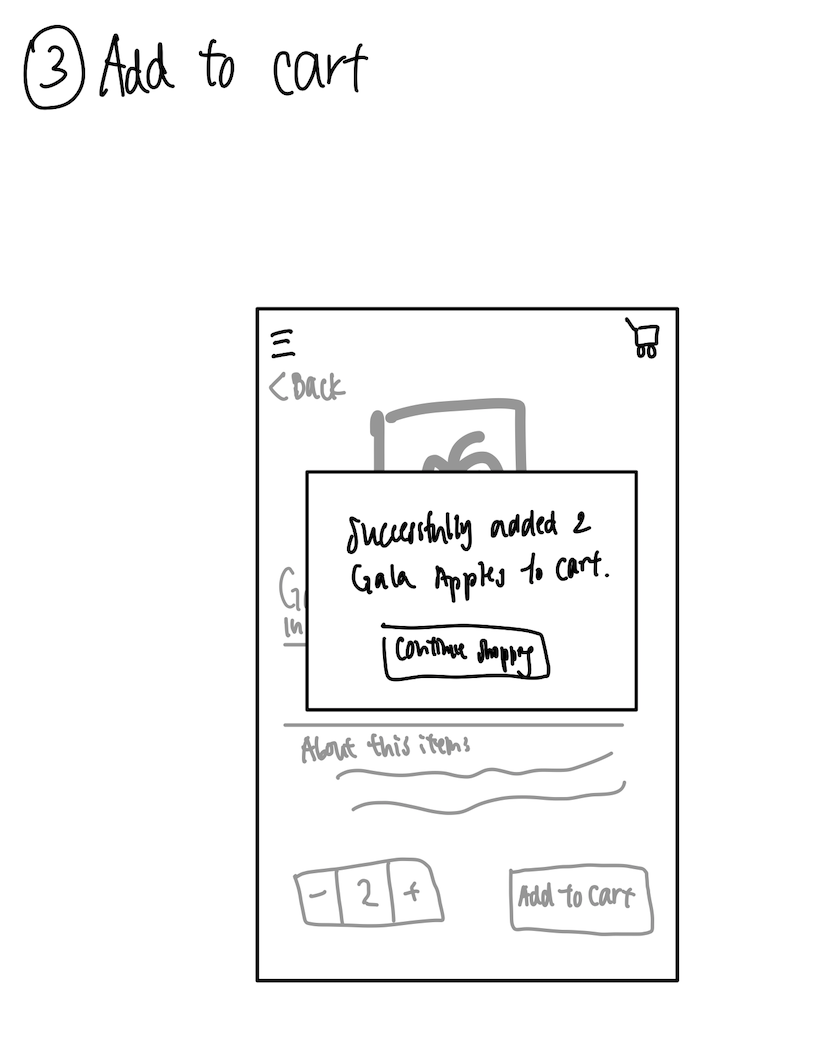 3 Add to cart
< Back
Successfully added 2
Gala Apples to cart.
G
In
Continue Shopping
About this items
- 2 +
Add to cart